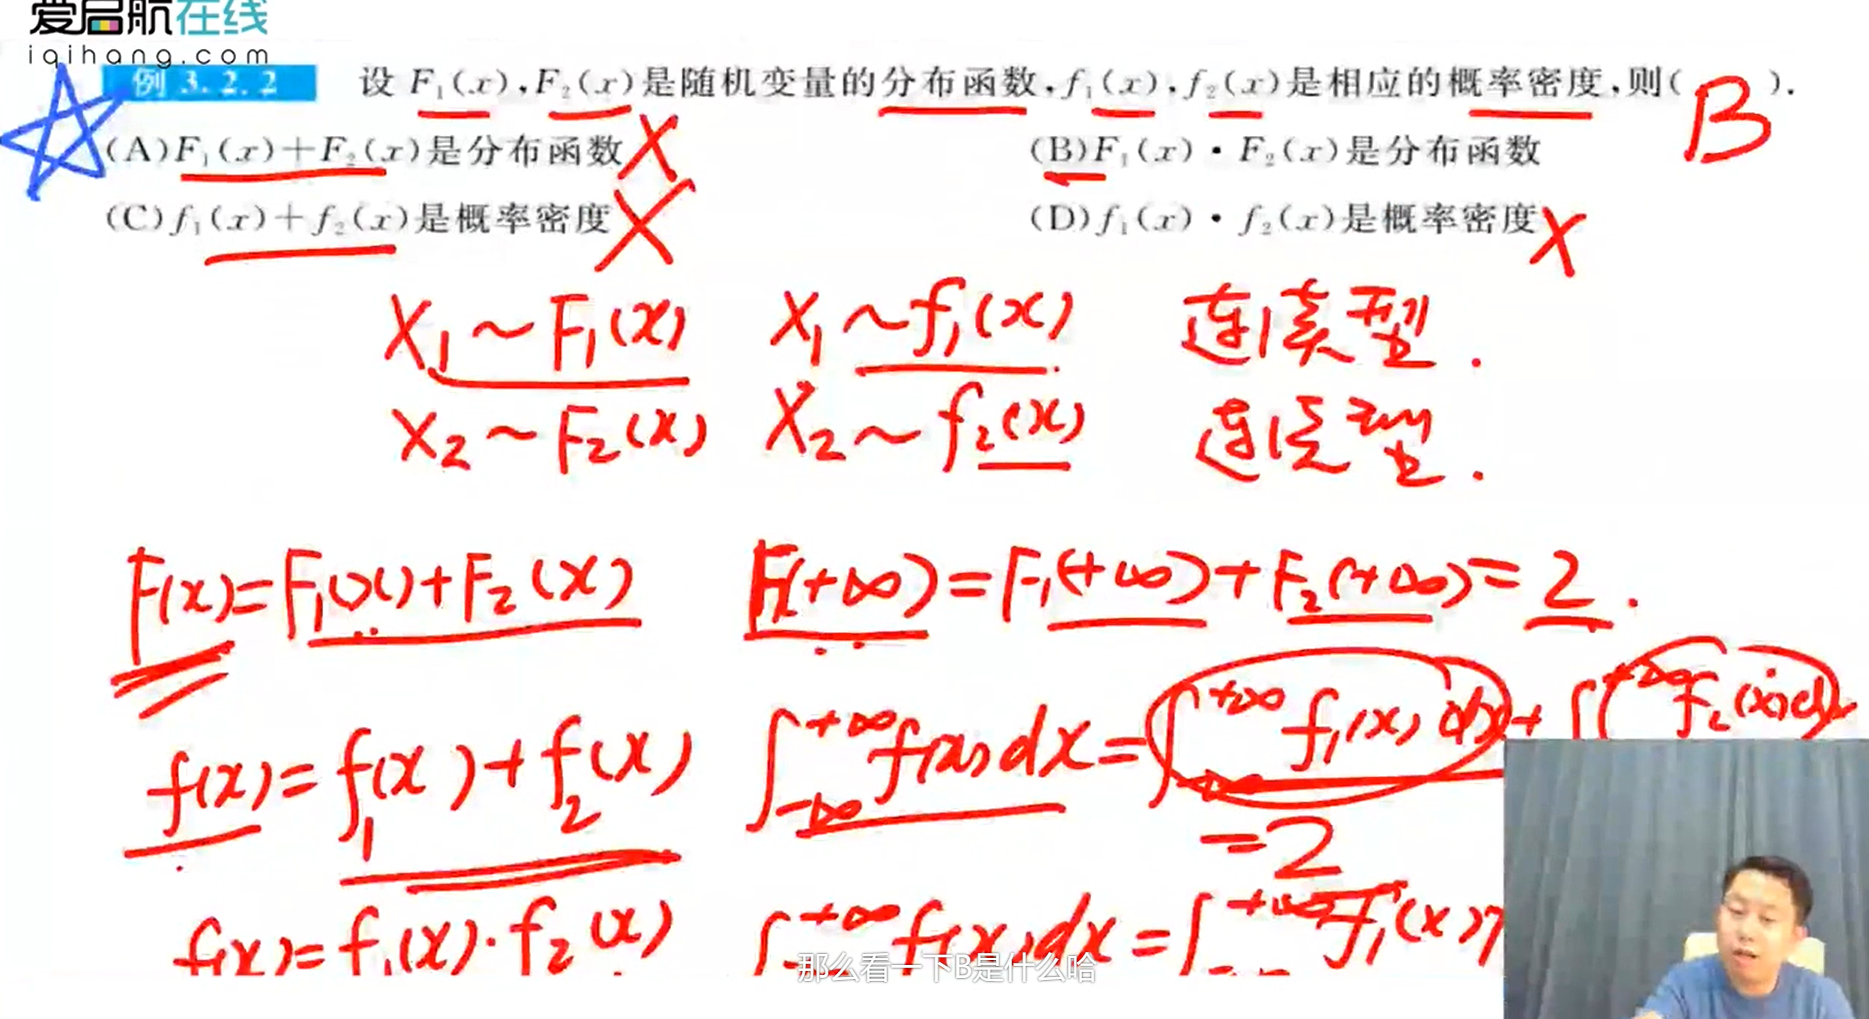 爱启航在线
iqihang.com
例 3.2.2 设 F₁(x),F₂(x)是随机变量的分布函数,f₁(x),f₂(x)是相应的概率密度,则( B ).
(A)F₁(x)+F₂(x)是分布函数 X
(B)F₁(x)·F₂(x)是分布函数
(C)f₁(x)+f₂(x)是概率密度 X
(D)f₁(x)·f₂(x)是概率密度 X
X₁~F₁(x) X₁~f₁(x) 连续型.
X₂~F₂(x) X₂~f₂(x) 连续型.
F(x)=F₁(x)+F₂(x) F(+∞)=F₁(+∞)+F₂(+∞)=2.
f(x)=f₁(x)+f₂(x) ∫₋∞⁺∞f(x)dx=∫₋∞⁺∞f₁(x)dx+∫⁺∞f₂(x)dx
=2
f(x)=f₁(x)·f₂(x) ∫⁺∞f(x)dx=∫⁺∞f₁(x)
那么看一下B是什么哈